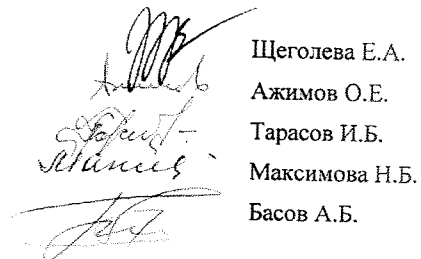 Щеголева Е.А.
Ажимов О.Е.
Тарасов И.Б.
Максимова Н.Б.
Басов А.Б.